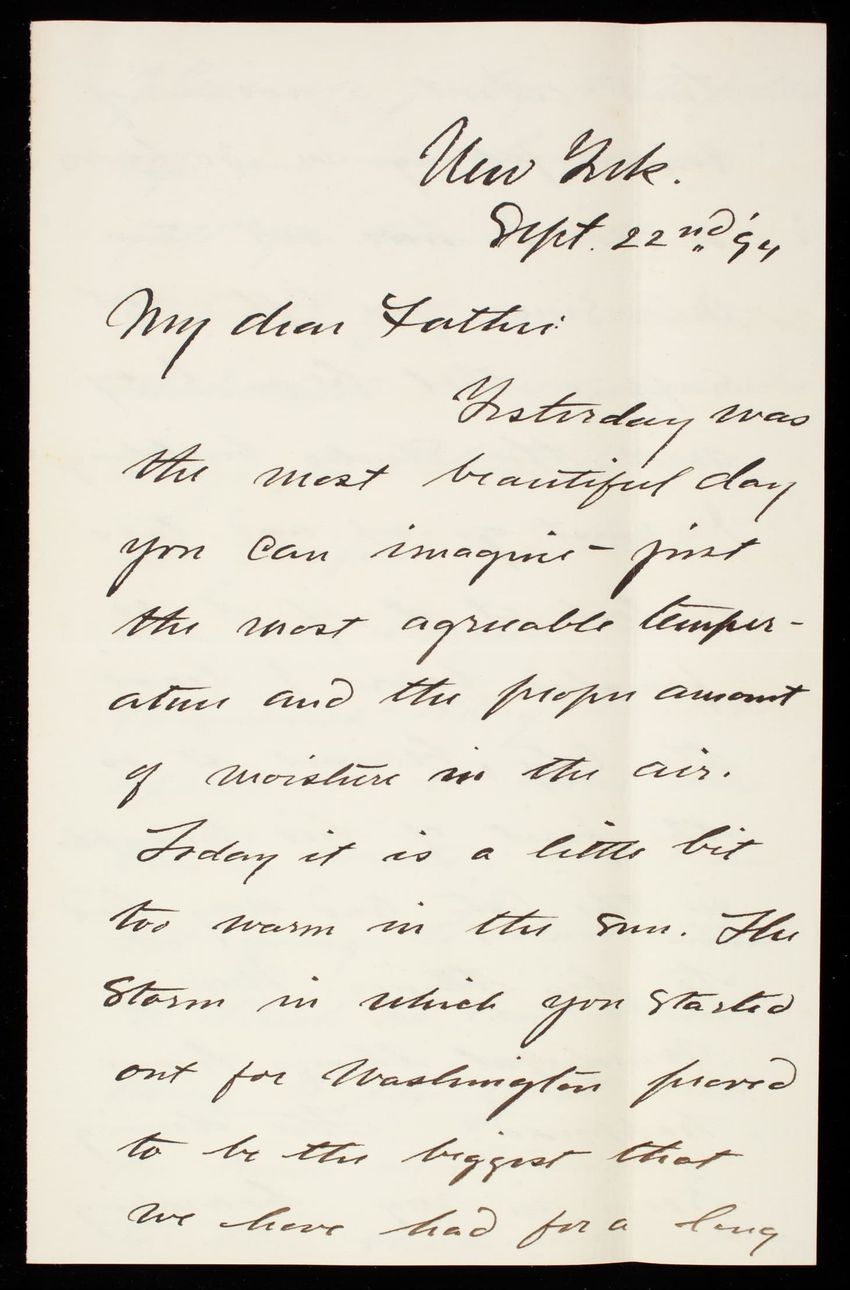 New York.
Sept. 22nd '94
My dear Father:
Yesterday was
the most beautiful day
you can imagine - just
the most agreeable temper-
ature and the proper amount
of moisture in the air.
Today it is a little bit
too warm in the sun. The
storm in which you started
out for Washington proved
to be the biggest that
we have had for a long